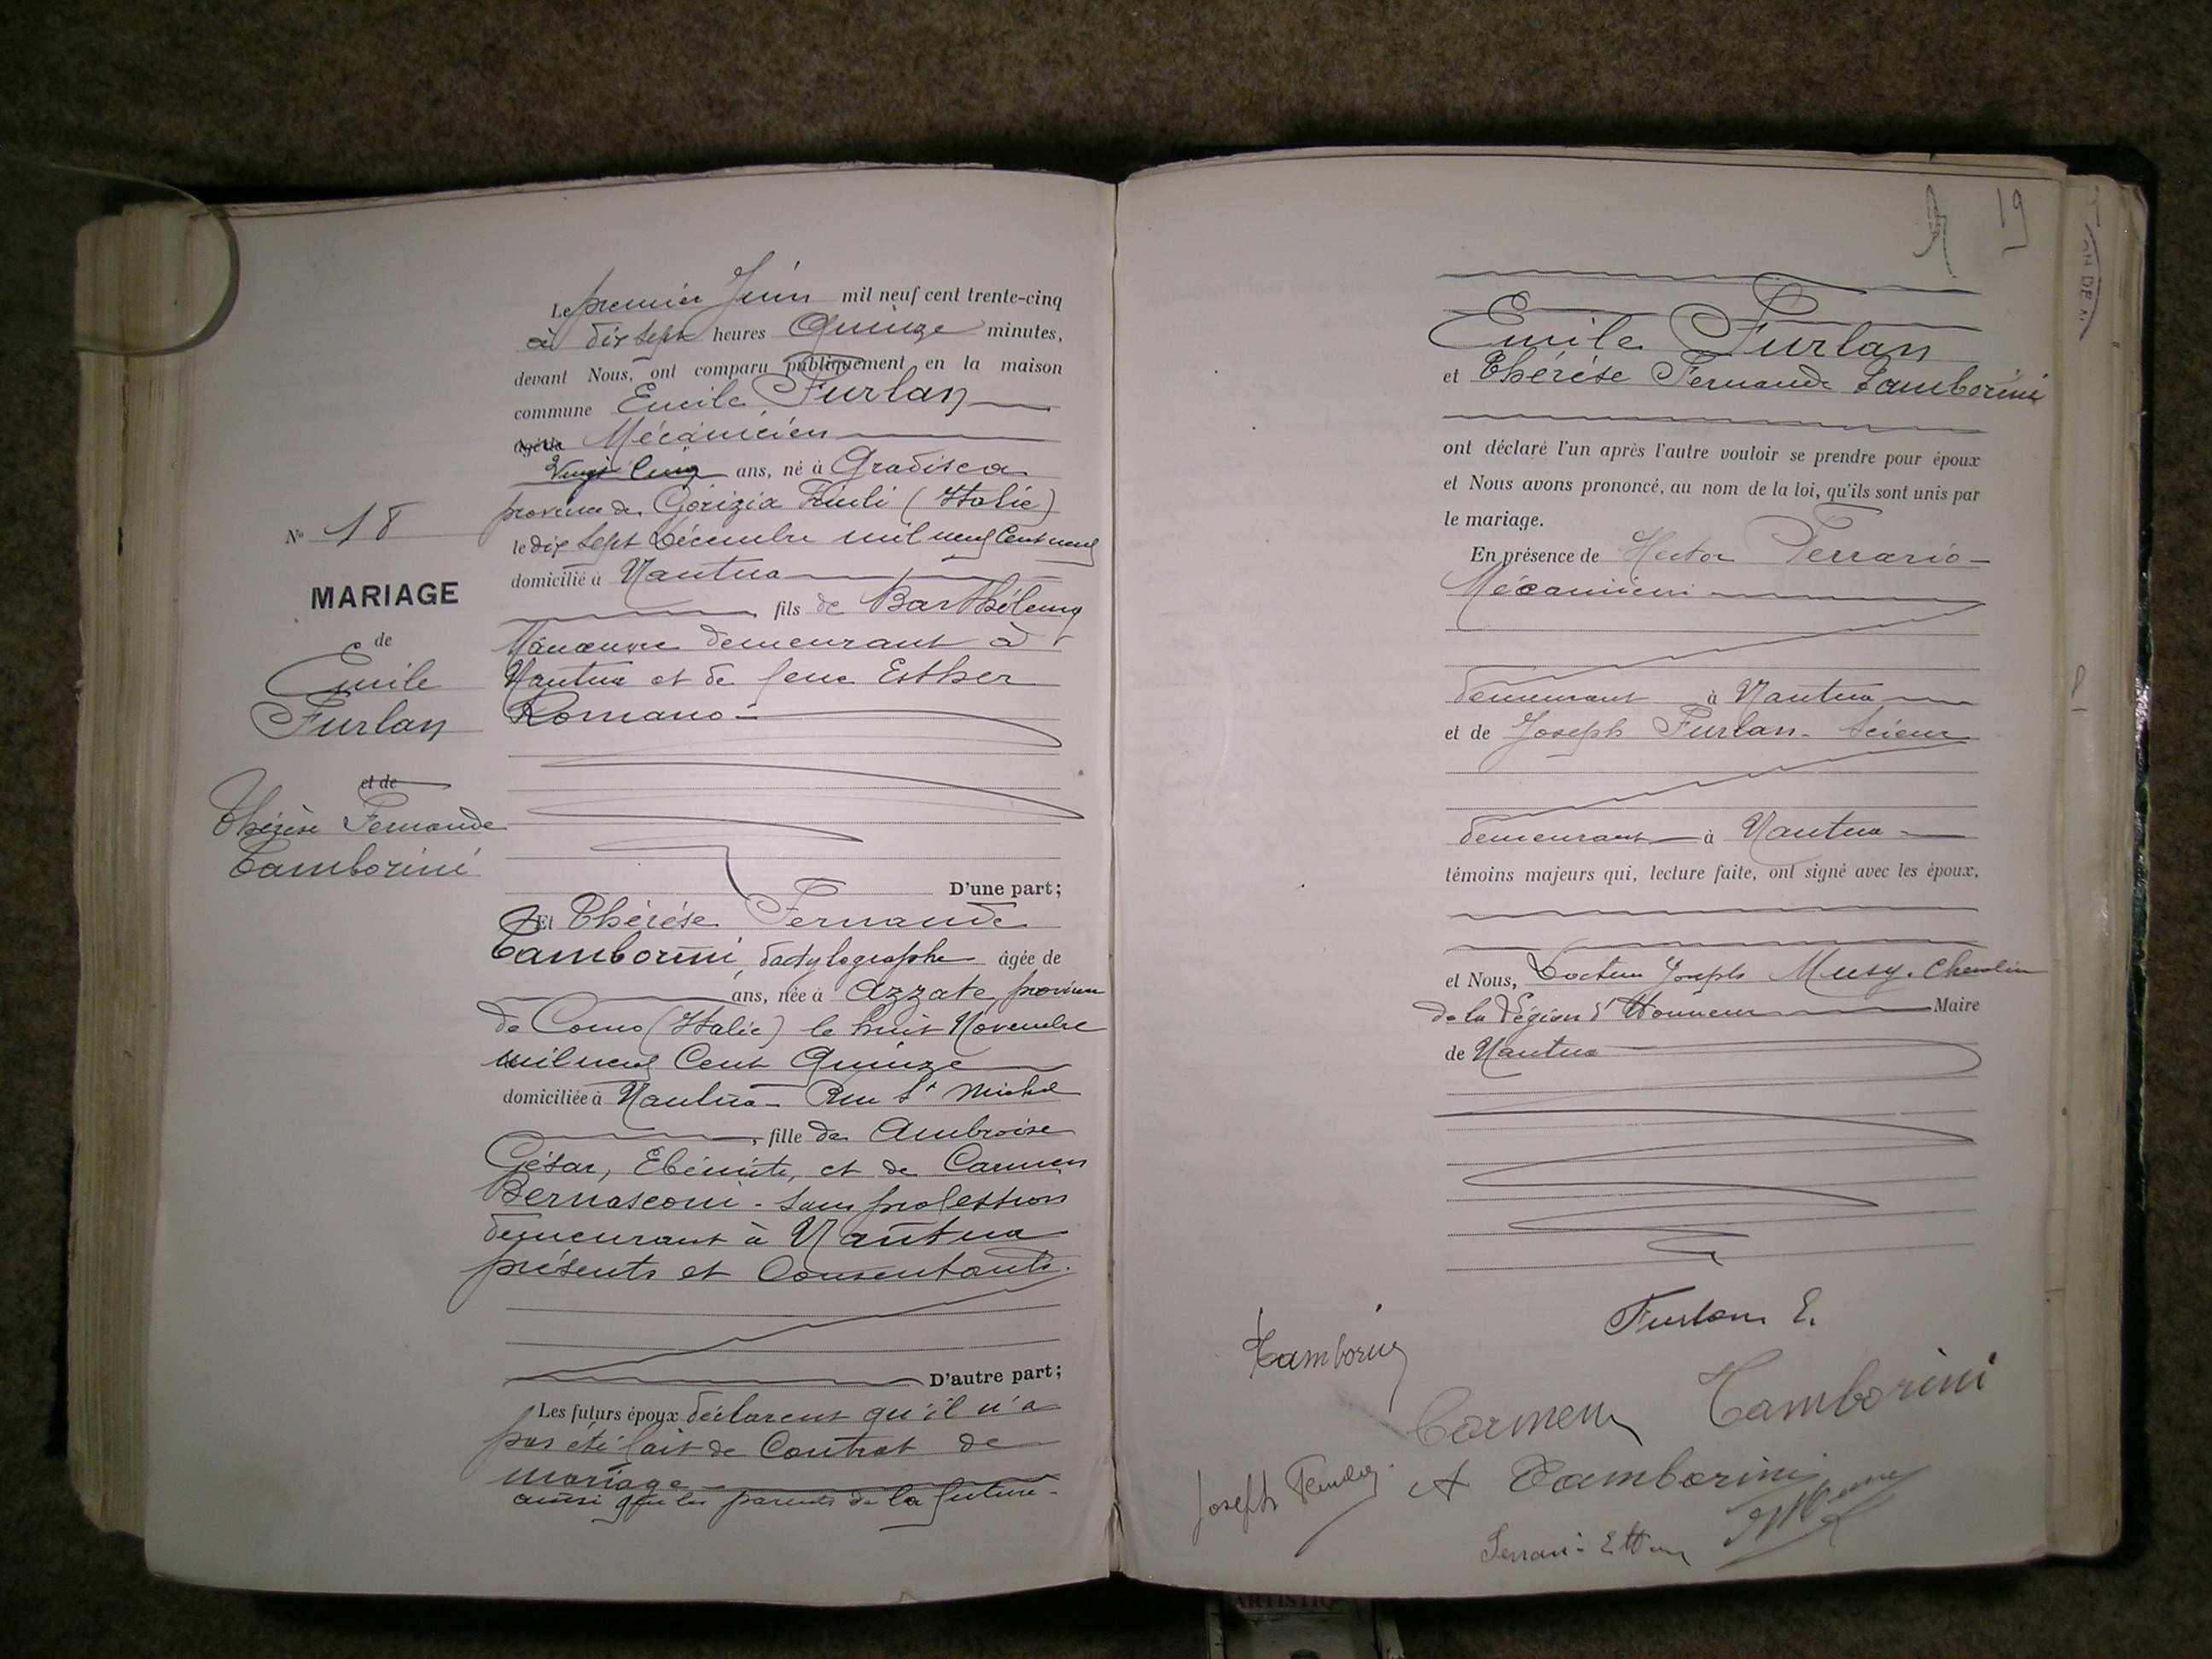 N° 18
MARIAGE
de
Emile
Furlan
et de
Thérèse Fernande
Tamborini
Le premier Juin mil neuf cent trente-cinq
à dix sept heures Quinze minutes,
devant Nous, ont comparu publiquement en la maison
commune Emile Furlan
âgé de Mécanicien
Vingt cinq ans, né à Gradisca
province de Gorizia Friuli (Italie)
le dix sept Décembre mil neuf cent neuf
domicilié à Nantua
fils de Barthélemy
Manœuvre demeurant à
Nantua et de feue Esther
Romano
D'une part;
Et Thérèse Fernande
Tamborini, dactylographe âgée de
ans, née à Azzate province
de Como (Italie) le huit Novembre
mil neuf Cent Quinze
domiciliée à Nantua - Rue St Michel
, fille de Ambroise
César, Ebéniste, et de Carmen
Bernasconi - sans profession
demeurant à Nantua
présents et Consentants.
D'autre part;
Les futurs époux déclarent qu'il n'a
pas été fait de Contrat de
mariage
ainsi que les parents de la future -
19
Emile Furlan
et Thérèse Fernande Tamborini
ont déclaré l'un après l'autre vouloir se prendre pour époux
et Nous avons prononcé, au nom de la loi, qu'ils sont unis par
le mariage.
En présence de Hector Ferrario -
Mécanicien
demeurant à Nantua
et de Joseph Furlan - Scieur
demeurant à Nantua
témoins majeurs qui, lecture faite, ont signé avec les époux,
et Nous, Docteur Joseph Musy. Chevalier
de la Légion d'Honneur Maire
de Nantua
Furlan E.
Tamborini
Carmen Tamborini
A Tamborini
Joseph
ARTISTIQ